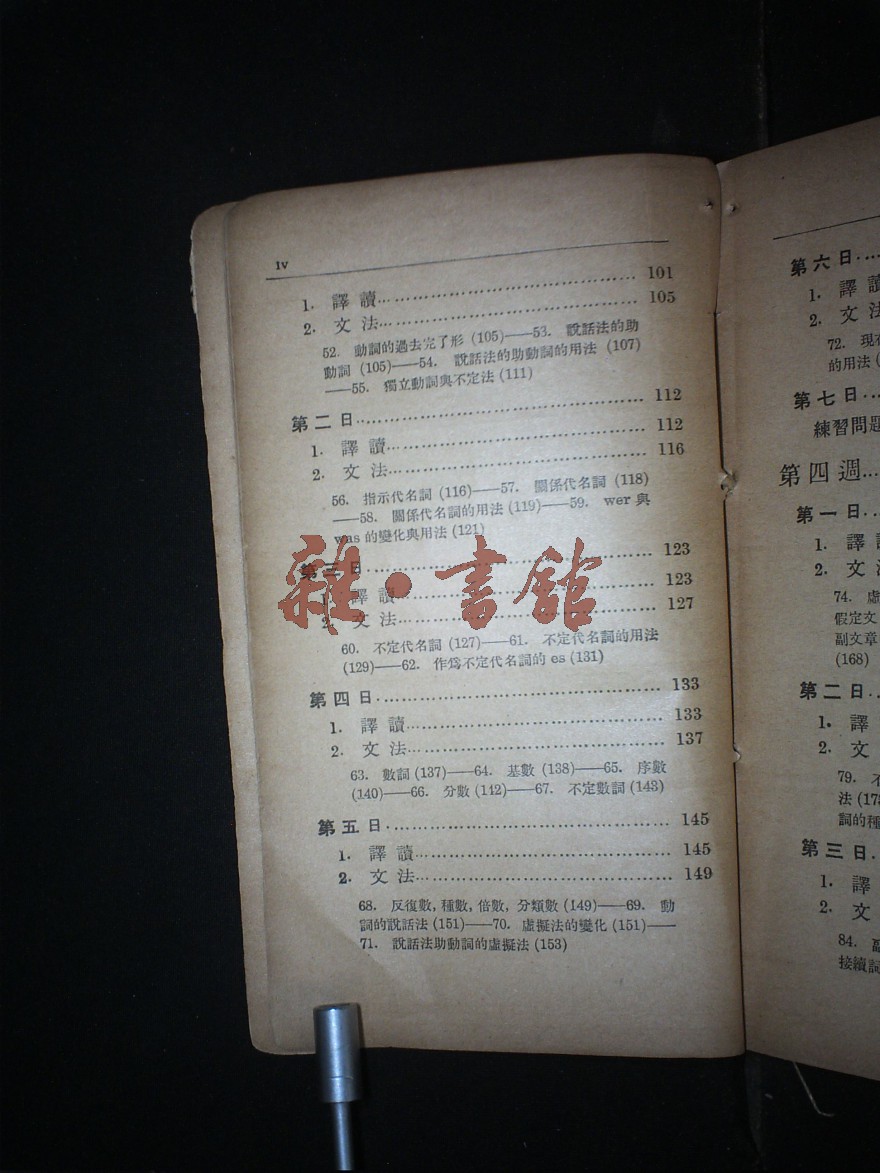 iv
1. 譯讀 101
2. 文法 105
52. 動詞的過去完了形 (105)——53. 說話法的助
動詞 (105)——54. 說話法的助動詞的用法 (107)
——55. 獨立動詞與不定法 (111)
第二日 112
1. 譯讀 112
2. 文法 116
56. 指示代名詞 (116)——57. 關係代名詞 (118)
——58. 關係代名詞的用法 (119)——59. wer 與
was 的變化與用法 (121)
第三日 123
1. 譯讀 123
2. 文法 127
60. 不定代名詞 (127)——61. 不定代名詞的用法
(129)——62. 作爲不定代名詞的 es (131)
第四日 133
1. 譯讀 133
2. 文法 137
63. 數詞 (137)——64. 基數 (138)——65. 序數
(140)——66. 分數 (142)——67. 不定數詞 (143)
第五日 145
1. 譯讀 145
2. 文法 149
68. 反復數, 種數, 倍數, 分類數 (149)——69. 動
詞的說話法 (151)——70. 虛擬法的變化 (151)——
71. 說話法助動詞的虛擬法 (153)
雜·書館
第六日
1. 譯讀
2. 文法
72. 現在
的用法 (
第七日
練習問題
第四週
第一日
1. 譯
2. 文
74. 虛
假定文
副文章
(168)
第二日
1. 譯
2. 文
79. 不
法 (17
詞的種
第三日
1. 譯
2. 文
84. 副
接續詞